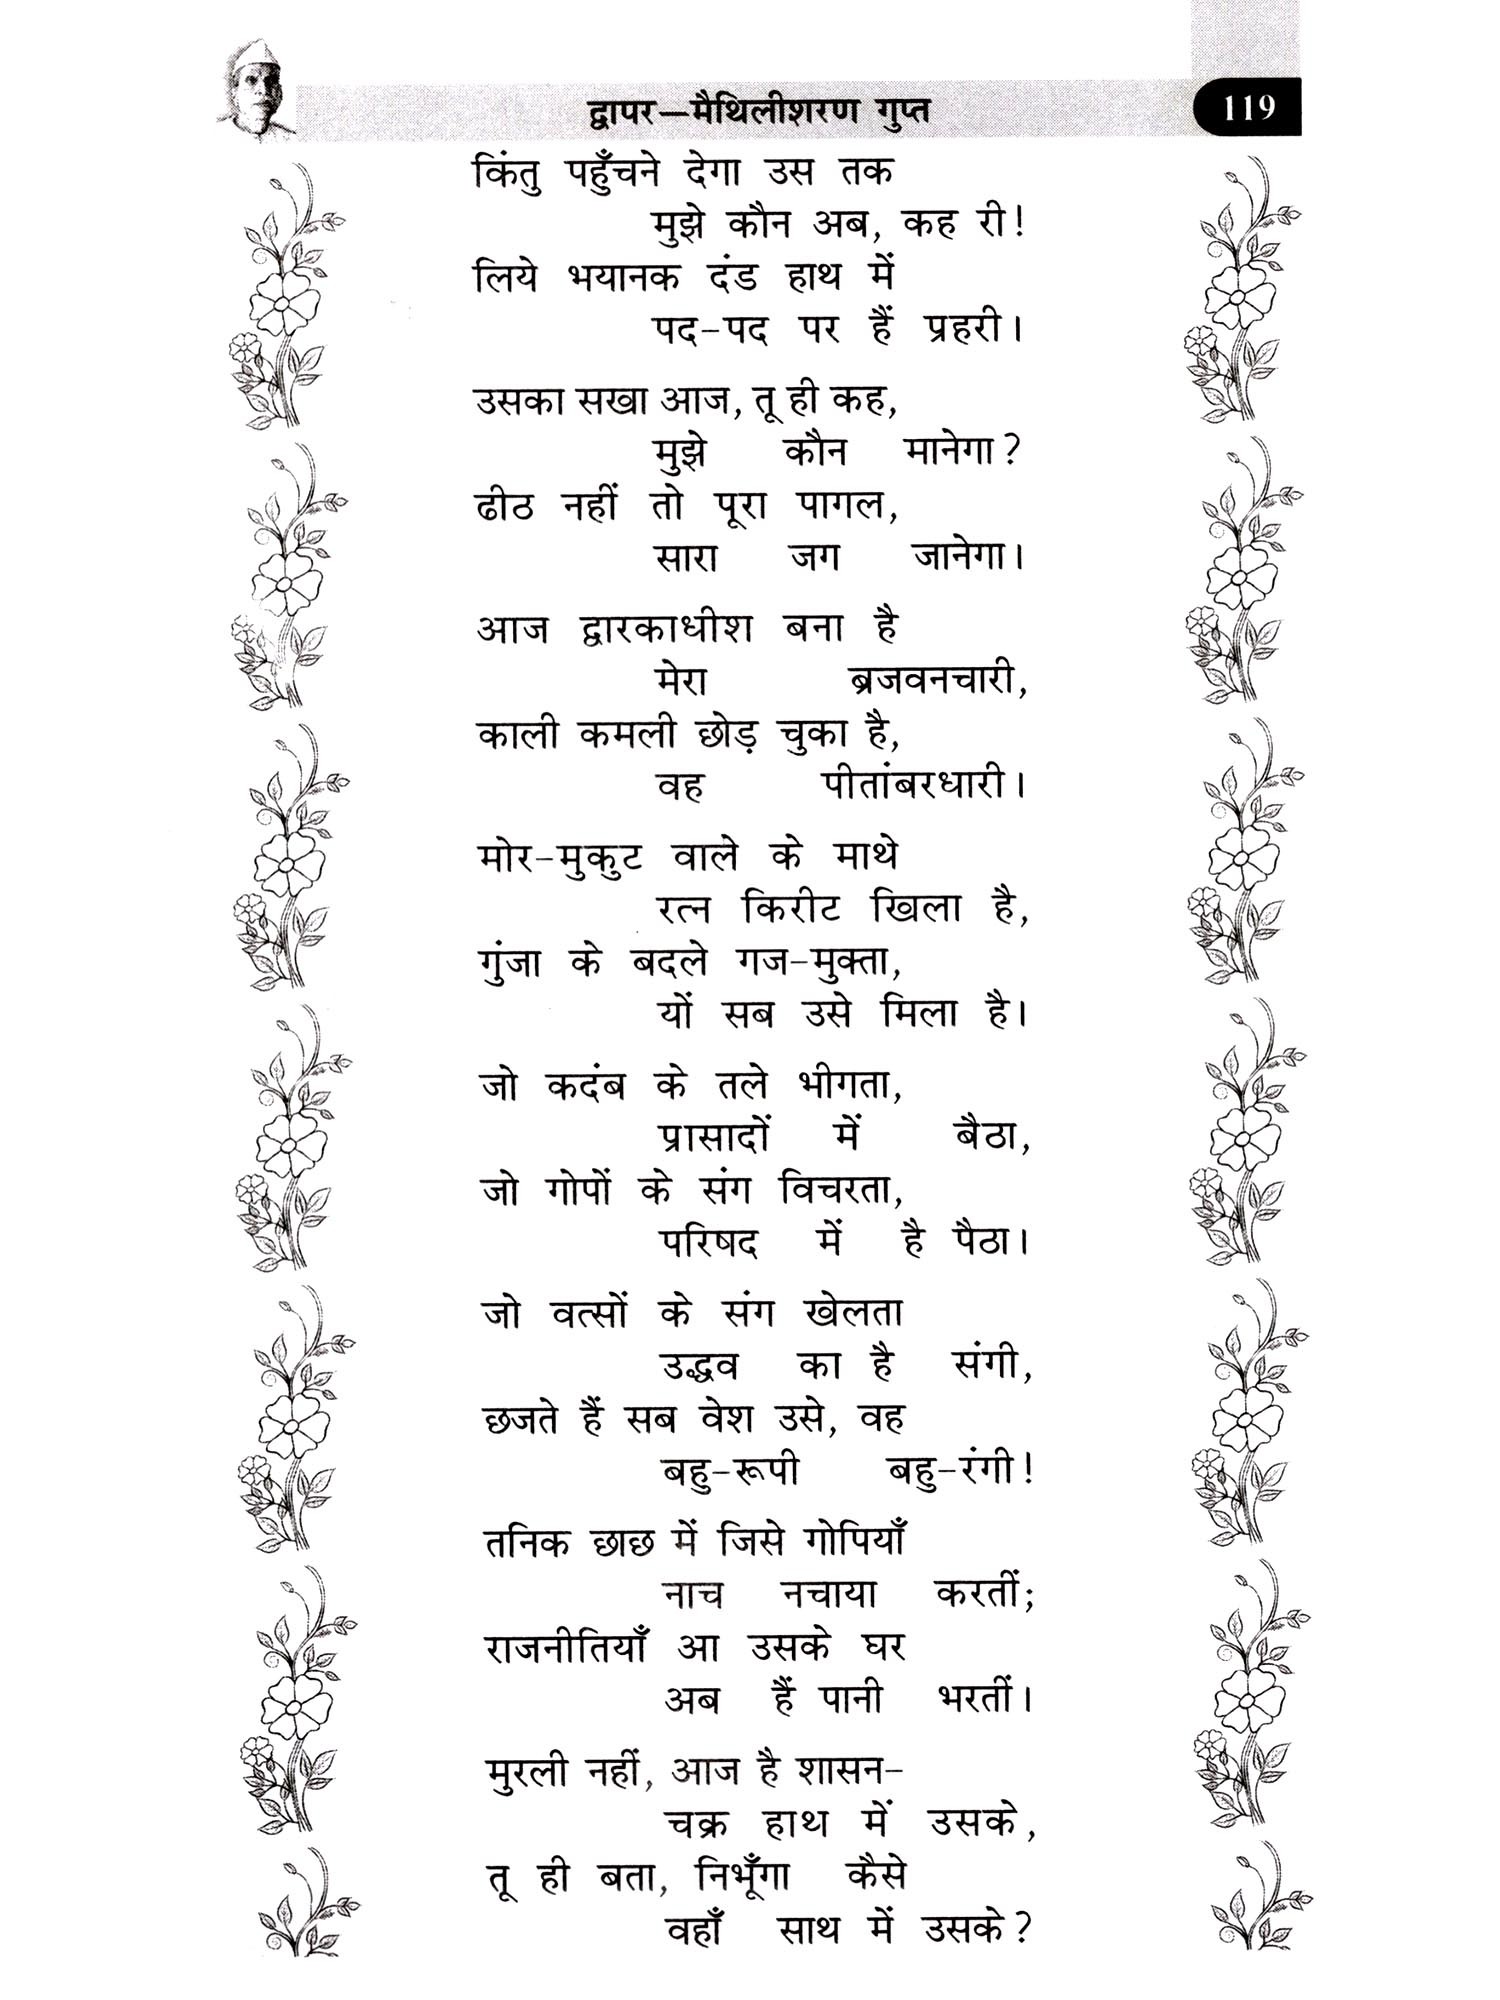 द्वापर—मैथिलीशरण गुप्त 119
किंतु पहुँचने देगा उस तक
मुझे कौन अब, कह री!
लिये भयानक दंड हाथ में
पद-पद पर हैं प्रहरी।
उसका सखा आज, तू ही कह,
मुझे कौन मानेगा?
ढीठ नहीं तो पूरा पागल,
सारा जग जानेगा।
आज द्वारकाधीश बना है
मेरा ब्रजवनचारी,
काली कमली छोड़ चुका है,
वह पीतांबरधारी।
मोर-मुकुट वाले के माथे
रत्न किरीट खिला है,
गुंजा के बदले गज-मुक्ता,
यों सब उसे मिला है।
जो कदंब के तले भीगता,
प्रासादों में बैठा,
जो गोपों के संग विचरता,
परिषद में है पैठा।
जो वत्सों के संग खेलता
उद्धव का है संगी,
छजते हैं सब वेश उसे, वह
बहु-रूपी बहु-रंगी!
तनिक छाछ में जिसे गोपियाँ
नाच नचाया करतीं;
राजनीतियाँ आ उसके घर
अब हैं पानी भरतीं।
मुरली नहीं, आज है शासन-
चक्र हाथ में उसके,
तू ही बता, निभूँगा कैसे
वहाँ साथ में उसके?